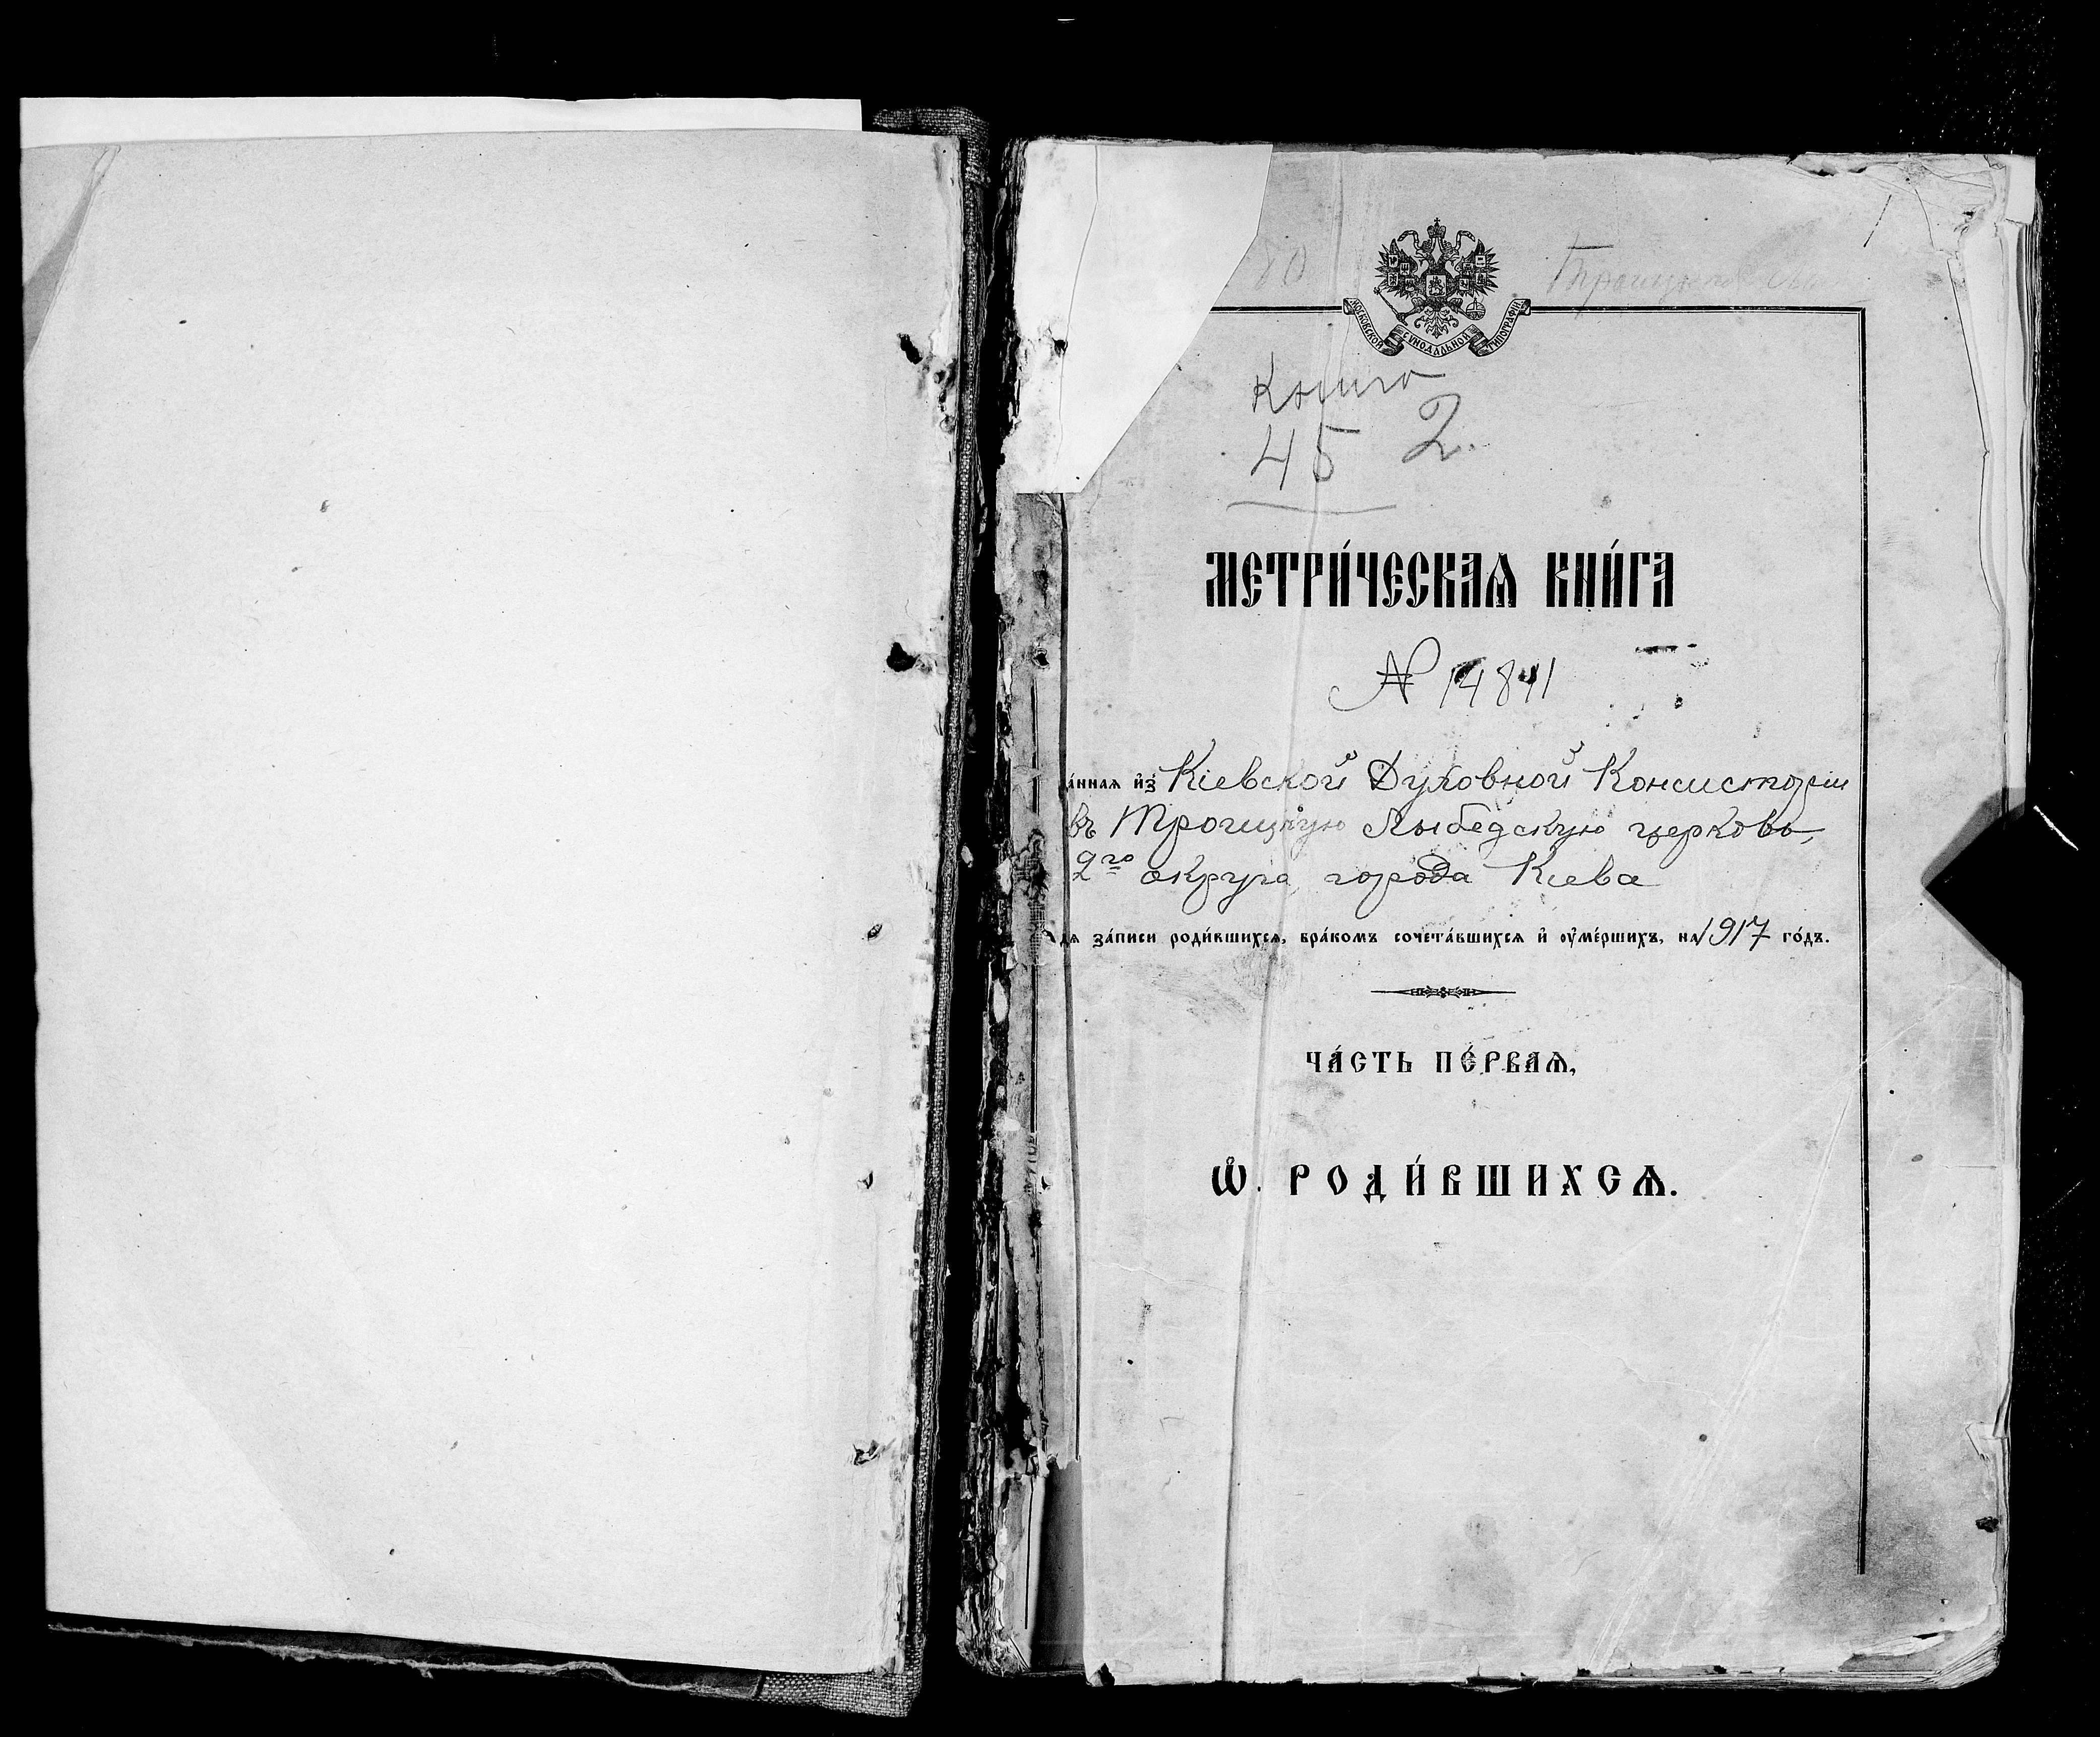 МОСКОВСКОЙ СѴНОДАЛЬНОЙ ТИПОГРАФІИ
Книга
45 2.
МЕТРИ́ЧЕСКАѦ КНИ́ГА
№ 14841
а́ннаѧ и҆з̾ Кіевской Духовной Консисторіи
въ Троицкую Лыбедскую церковь,
2го округа города Кіева
дѧ за́писи роди́вшихсѧ, бра́комъ сочета́вшихсѧ и҆ оу҆ме́ршихъ, на 1917 го́дъ.
ЧА́СТЬ ПЕ́РВАѦ,
Ѽ РОДИ́ВШИХСѦ.